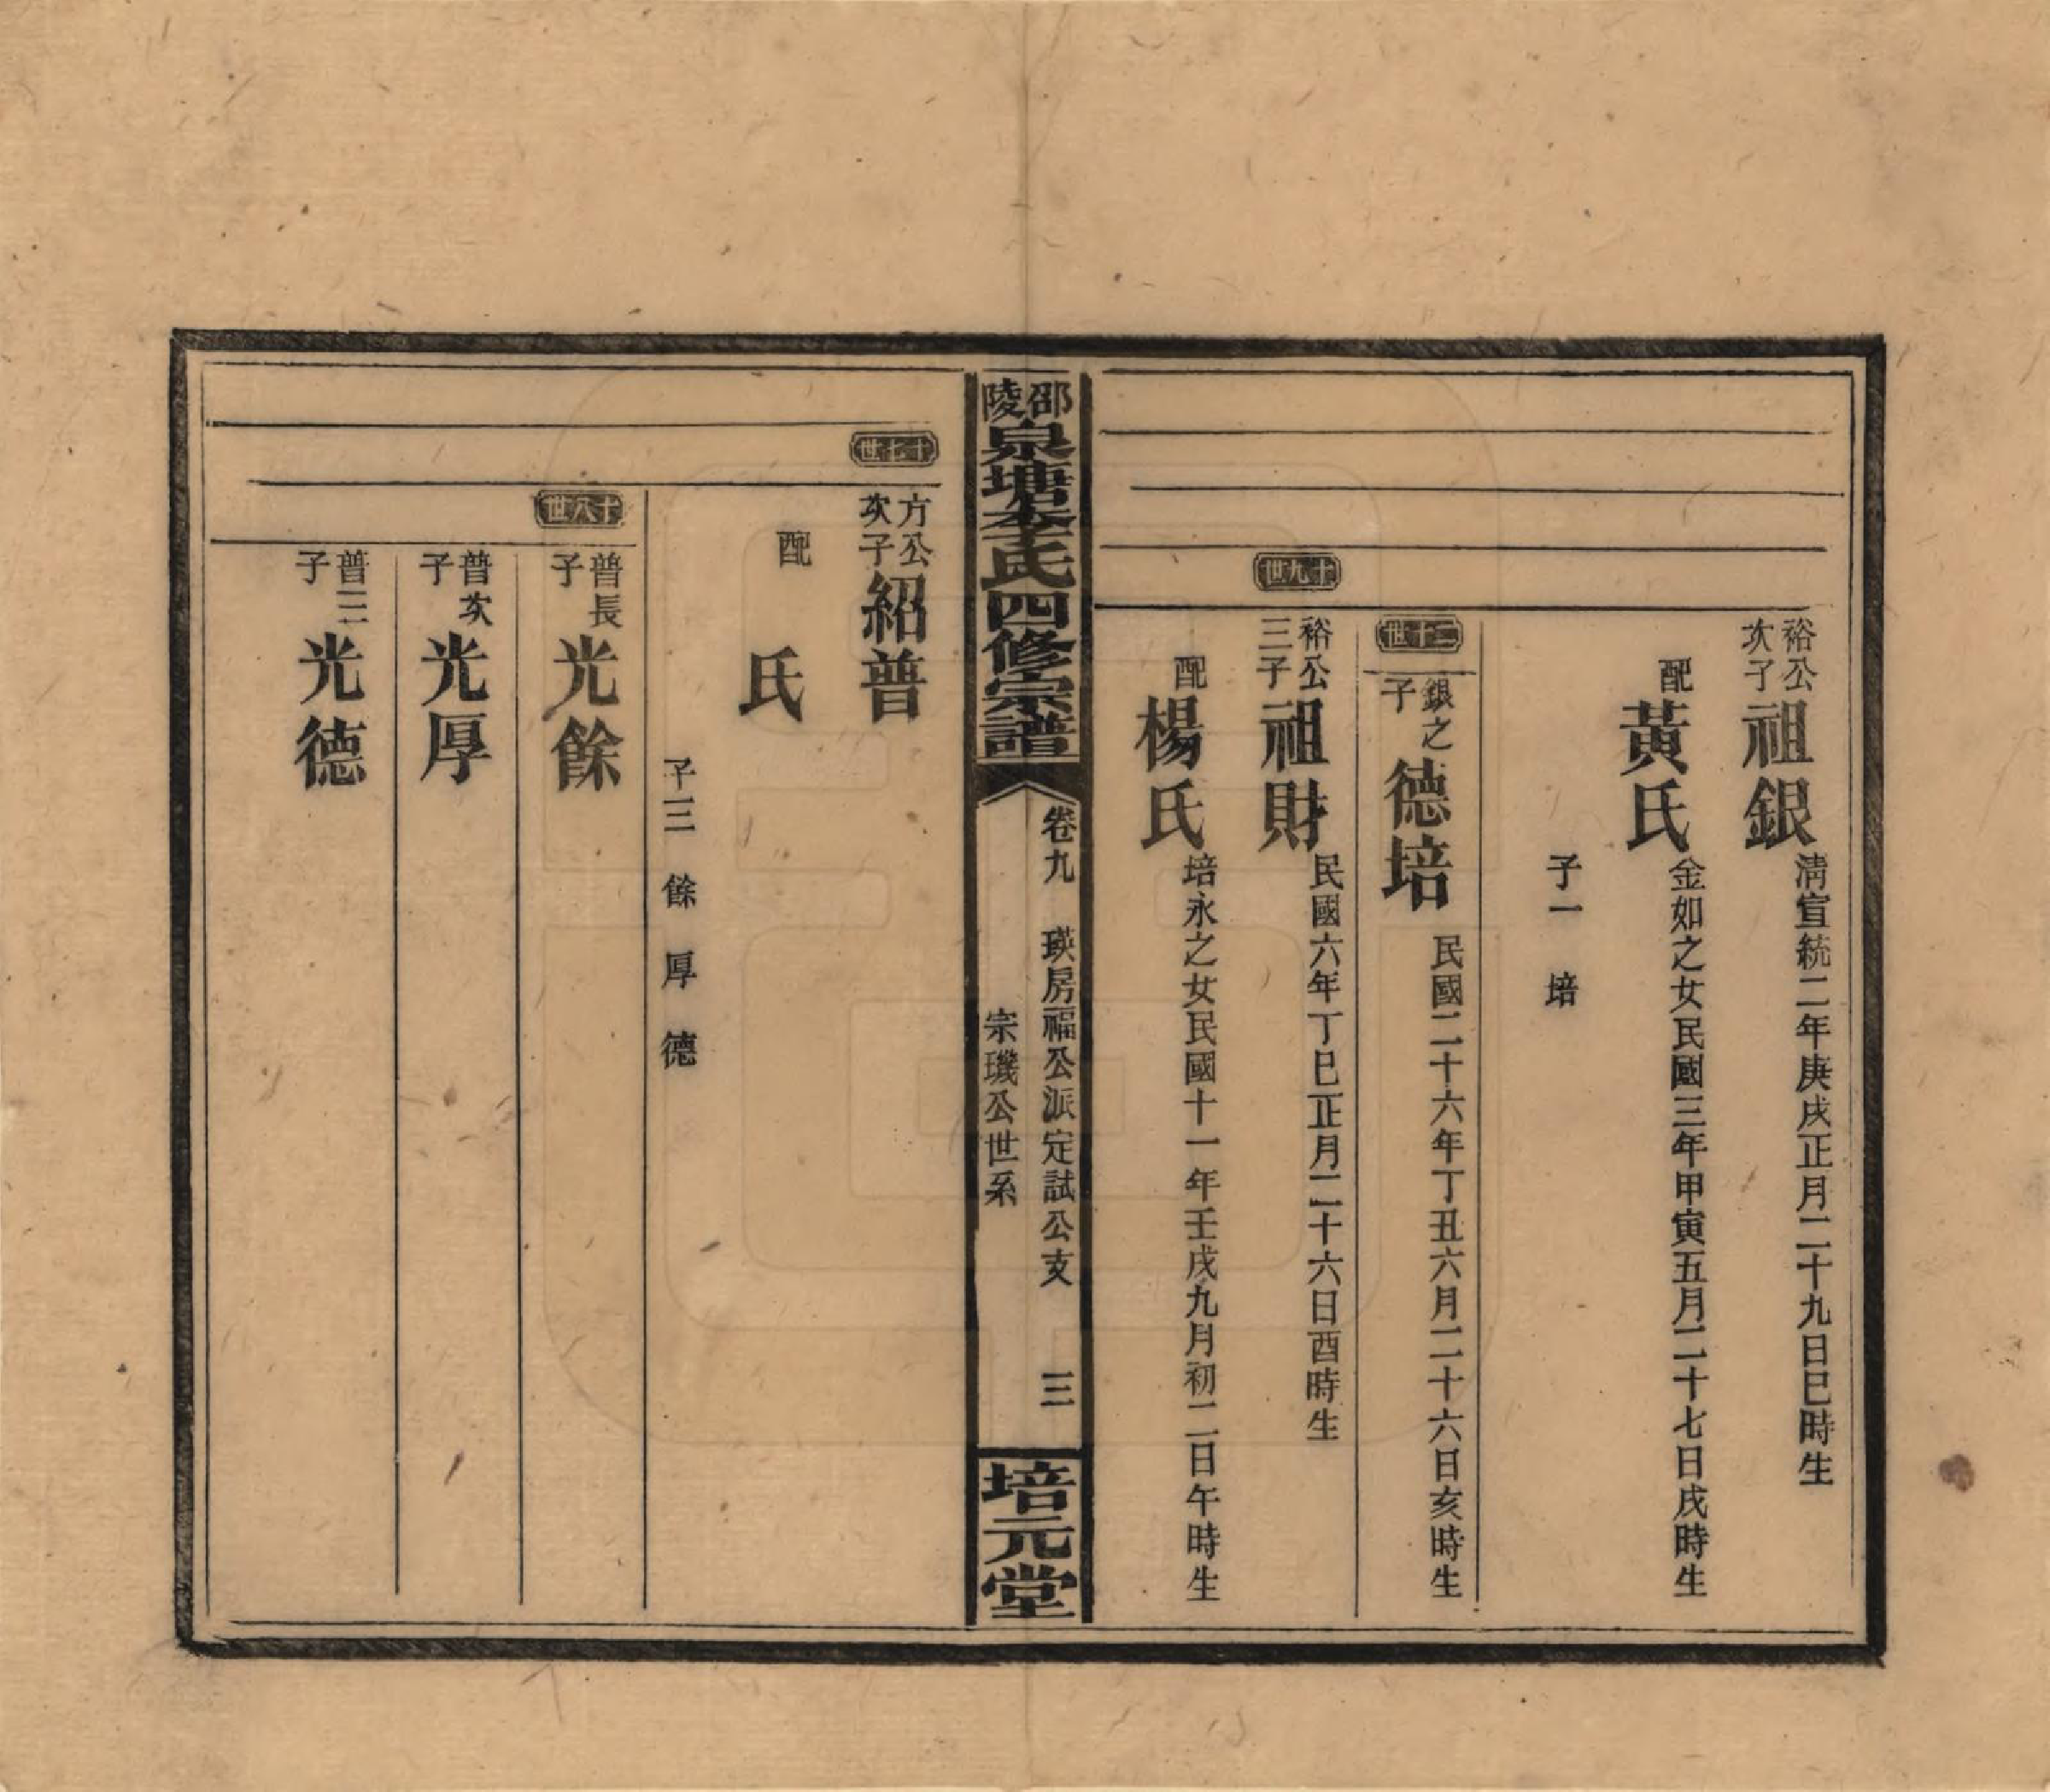 裕公次子祖銀清宣統二年庚戌正月二十九日巳時生
配黃氏金如之女民國三年甲寅五月二十七日戌時生
子一 培
二十世
銀之子德培民國二十六年丁丑六月二十六日亥時生
十九世
裕公三子祖財民國六年丁巳正月二十六日酉時生
配楊氏培永之女民國十一年壬戌九月初二日午時生
邵陵泉塘李氏四修宗譜
卷九 瑛房福公派定試公支 三
宗璣公世系
培元堂
十七世
方公次子紹普
配 氏
子三 餘 厚 德
十八世
普長子光餘
普次子光厚
普三子光德